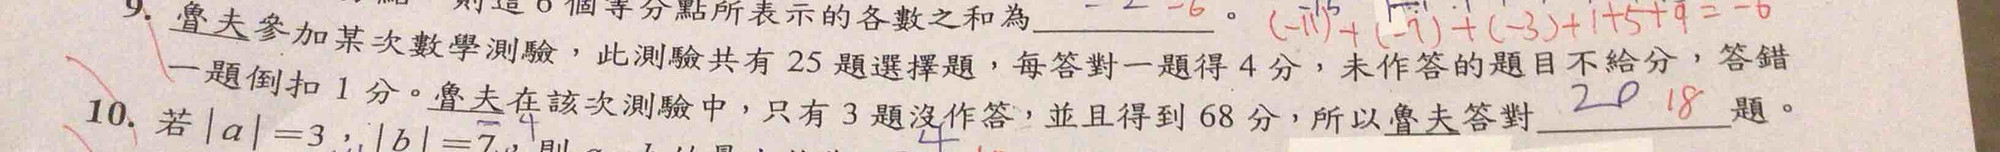 則這6個等分點所表示的各數之和為 -6 。 (-11)+(-7)+(-3)+1+5+9=-6
9. 魯夫參加某次數學測驗，此測驗共有 25 題選擇題，每答對一題得 4 分，未作答的題目不給分，答錯
一題倒扣 1 分。魯夫在該次測驗中，只有 3 題沒作答，並且得到 68 分，所以魯夫答對 20 18 題。
10. 若|a|=3，|b|=7，則